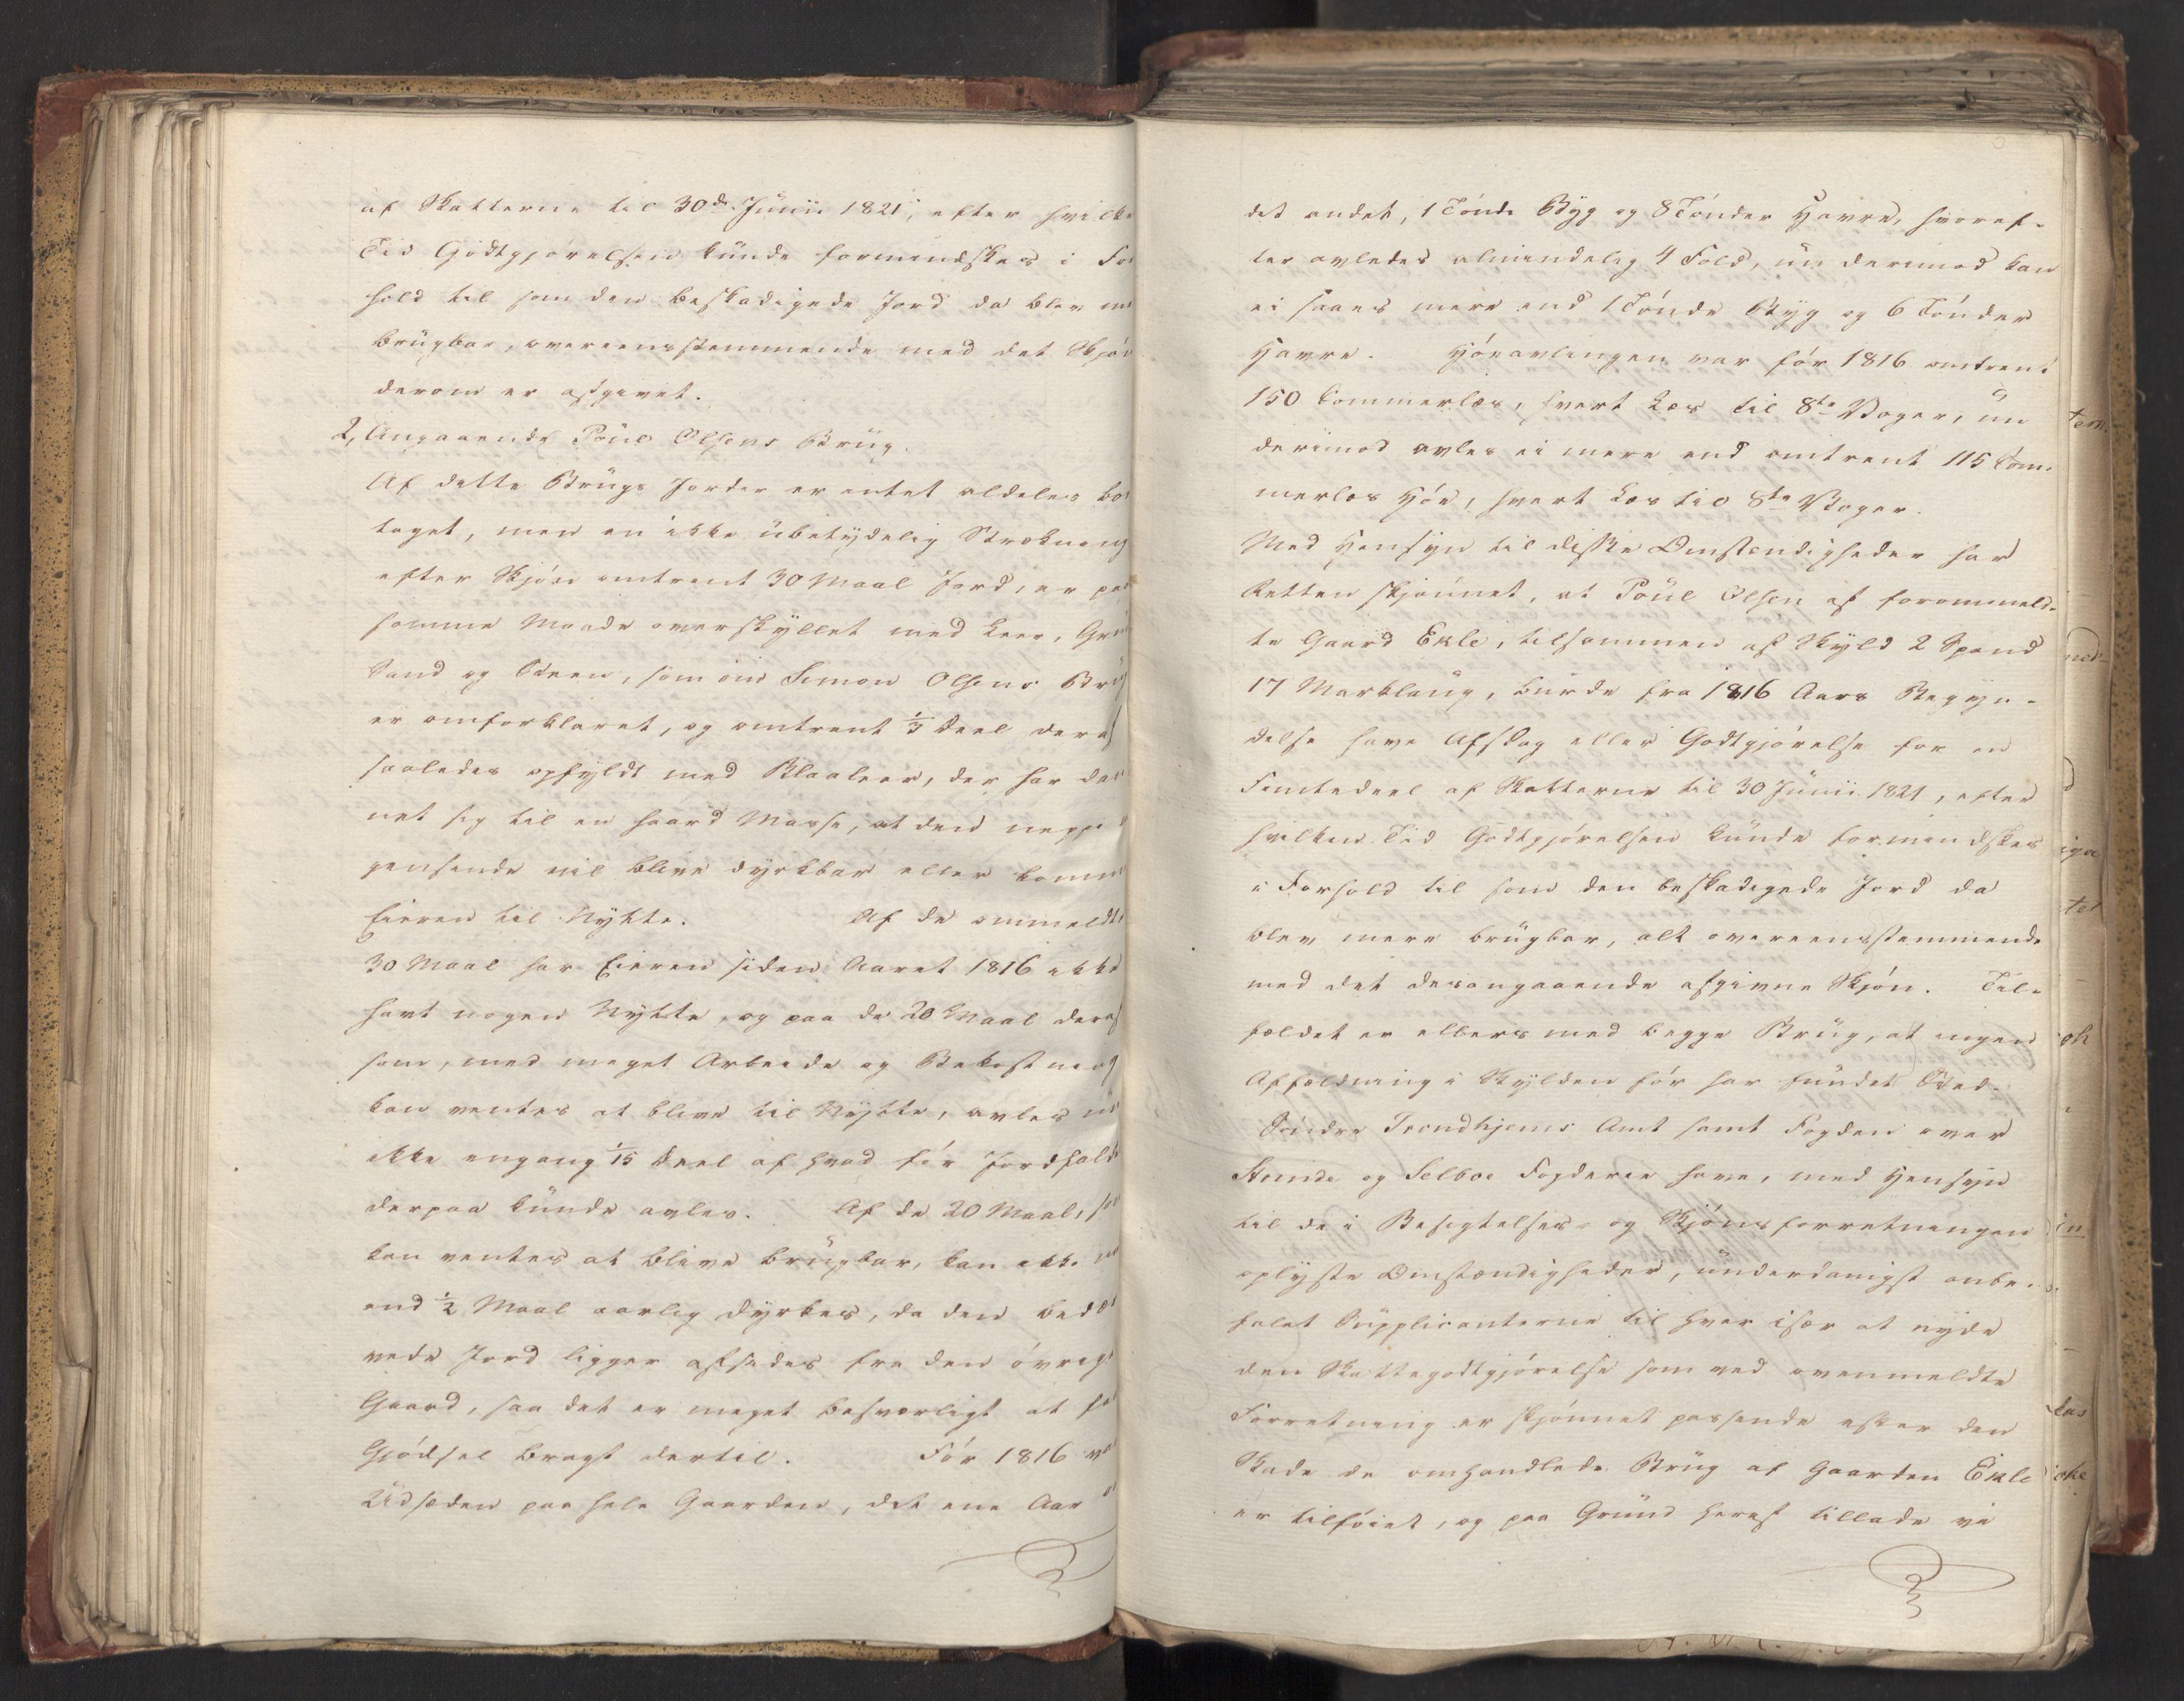 af Skatterne til 30de Junii 1821, efter hvilke
Tid Godtgjørelsen kunde formindskes i For
hold til som den beskadigede Jord da blev me
brugbar, overeensstemmende med det Skjøn
derom er afgivet.
2, Angaaende Poul Olsens Brug.
Af dette Brugs Jorder er intet aldeles bo
taget, men en ikke ubetydelig Strækning
efter Skjøn omtrent 30 Maal Jord, er paa
samme Maade overskyllet med Leer, Gru
Sand og Steen, som om Simon Olsens Brug
er omforklaret, og omtrent 1/3 Deel deraf
saaledes opfyldt med Blaaleer, der har dan
net sig til en haard Masse, at den neppe
gensende vil blive dyrkbar eller komme
Eieren til Nytte. Af de ommeldte
30 Maal har Eieren siden Aaret 1816 ikke
havt nogen Nytte, og paa de 20 Maal deraf
som, med meget Arbeide og Bekostning
kan ventes at blive til Nytte, avles nu
ikke engang 1/15 Deel af hvad før Jordfaldet
derpaa kunde avles. Af de 20 Maal, som
kan ventes at blive brugbar, kan ikke
end 1/2 Maal aarlig dyrkes, da den bedær
vede Jord ligger afsides fra den øvrige
Gaard, saa det er meget besværligt at faa
Gjødsel bragt dertil. Før 1816 var
Udsæden paa hele Gaarden, det ene Aar
det andet, 1 Tønde Byg og 8 Tønder Havre, hvoref-
ter avledes almindelig 4 Fold, nu derimod kan
ei saaes mere end 1 Tønde Byg og 6 Tønder
Havre. Høeavlingen var før 1816 omtrent
150 Sommerlæs, hvert Læs til 8te Voger, nu
derimod avles ei mere end omtrent 115 Som-
merlæs Høe, hvert Læs til 8te Voger.
Med Hensyn til disse Omstændigheder har
Retten skjønnet, at Poul Olsen af forommeld-
te Gaard Ekle, tilsammen af Skyld 2 Spand
17 Marklaug, burde fra 1816 Aars Begyn-
delse have Afslag eller Godtgjørelse for en
Femtedeel af Skatterne til 30 Junii 1821, efter
hvilken Tid Godtgjørelsen kunde formindskes
i Forhold til som den beskadigede Jord da
blev mere brugbar, alt overeensstemmende
med det desangaaende afgivne Skjøn. Til-
fældet er ellers med begge Brug, at ingen
Affældning i Skylden før har fundet Sted.
Søndre Trondhjems Amt samt Fogden over
Strinde og Selboe Fogderie have, med Hensyn
til de i Besigtelses- og Skjønsforretningen
oplyste Omstændigheder, underdanigst anbe-
falet Supplicanterne til hver især at nyde
den Skattegodtgjørelse som ved ovenmeldte
Forretning er skjønnet passende efter den
Skade de omhandlede Brug af Gaarden Ekle
er tilføiet, og paa Grund heraf tillade vi